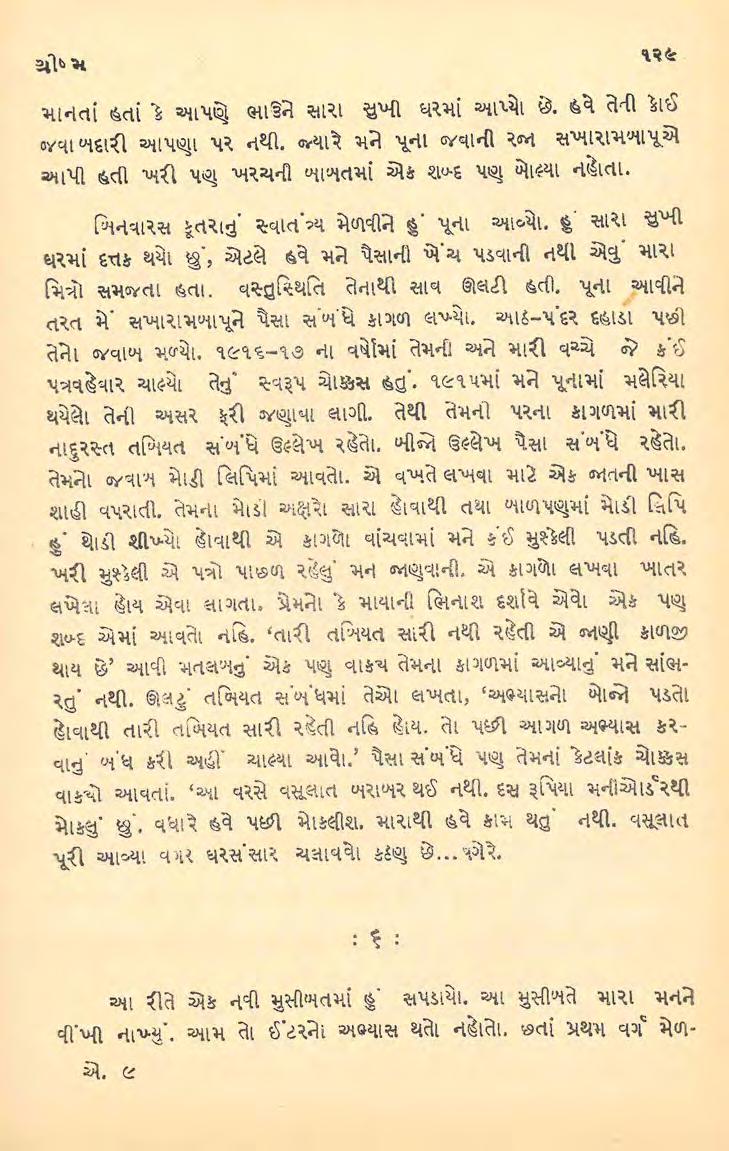 ગ્રીષ્મ
૧૨૯
માનતાં હતાં કે આપણે ભાઉને સારા સુખી ઘરમાં આપ્યો છે. હવે તેની કોઈ
જવાબદારી આપણા પર નથી. જ્યારે મને પૂના જવાની રજા સખારામબાપૂએ
આપી હતી ખરી પણ ખરચની બાબતમાં એક શબ્દ પણ બોલ્યા નહોતા.
બિનવારસ કૂતરાનું સ્વાતંત્ર્ય મેળવીને હું પૂના આવ્યો. હું સારા સુખી
ઘરમાં દત્તક થયો છું, એટલે હવે મને પૈસાની ખેંચ પડવાની નથી એવું મારા
મિત્રો સમજતા હતા. વસ્તુસ્થિતિ તેનાથી સાવ ઊલટી હતી. પૂના આવીને
તરત મેં સખારામબાપૂને પૈસા સંબંધે કાગળ લખ્યો. આઠ-પંદર દહાડા પછી
તેનો જવાબ મળ્યો. ૧૯૧૬-૧૭ ના વર્ષોમાં તેમની અને મારી વચ્ચે જે કંઈ
પત્રવહેવાર ચાલ્યો તેનું સ્વરૂપ ચોક્કસ હતું. ૧૯૧૫માં મને પૂનામાં મલેરિયા
થયેલો તેની અસર ફરી જણાવા લાગી. તેથી તેમની પરના કાગળમાં મારી
નાદુરસ્ત તબિયત સંબંધે ઉલ્લેખ રહેતો. બીજો ઉલ્લેખ પૈસા સંબંધે રહેતો.
તેમનો જવાબ મોડી લિપિમાં આવતો. એ વખતે લખવા માટે એક જાતની ખાસ
શાહી વપરાતી. તેમના મોડી અક્ષરો સારા હોવાથી તથા બાળપણમાં મોડી લિપિ
હું થોડી શીખ્યો હોવાથી એ કાગળો વાંચવામાં મને કંઈ મુશ્કેલી પડતી નહિ.
ખરી મુશ્કેલી એ પત્રો પાછળ રહેલું મન જાણવાની. એ કાગળો લખવા ખાતર
લખેલા હોય એવા લાગતા. પ્રેમનો કે માયાની ભિનાશ દર્શાવે એવો એક પણ
શબ્દ એમાં આવતો નહિ. ‘તારી તબિયત સારી નથી રહેતી એ જાણી કાળજી
થાય છે’ આવી મતલબનું એક પણ વાક્ય તેમના કાગળમાં આવ્યાનું મને સાંભ-
રતું નથી. ઊલટું તબિયત સંબંધમાં તેઓ લખતા, ‘અભ્યાસનો બોજો પડતો
હોવાથી તારી તબિયત સારી રહેતી નહિ હોય. તો પછી આગળ અભ્યાસ કર-
વાનું બંધ કરી અહીં ચાલ્યા આવો.’ પૈસા સંબંધે પણ તેમનાં કેટલાંક ચોક્કસ
વાક્યો આવતાં. ‘આ વરસે વસૂલાત બરાબર થઈ નથી. દસ રૂપિયા મનીઓર્ડરથી
મોકલું છું. વધારે હવે પછી મોકલીશ. મારાથી હવે કામ થતું નથી. વસૂલાત
પૂરી આવ્યા વગર ઘરસંસાર ચલાવવો કઠણ છે... વગેરે.
: ૬ :
આ રીતે એક નવી મુસીબતમાં હું સપડાયો. આ મુસીબતે મારા મનને
વીંખી નાખ્યું. આમ તો ઈંટરનો અભ્યાસ થતો નહોતો. છતાં પ્રથમ વર્ગ મેળ-
એ. ૯